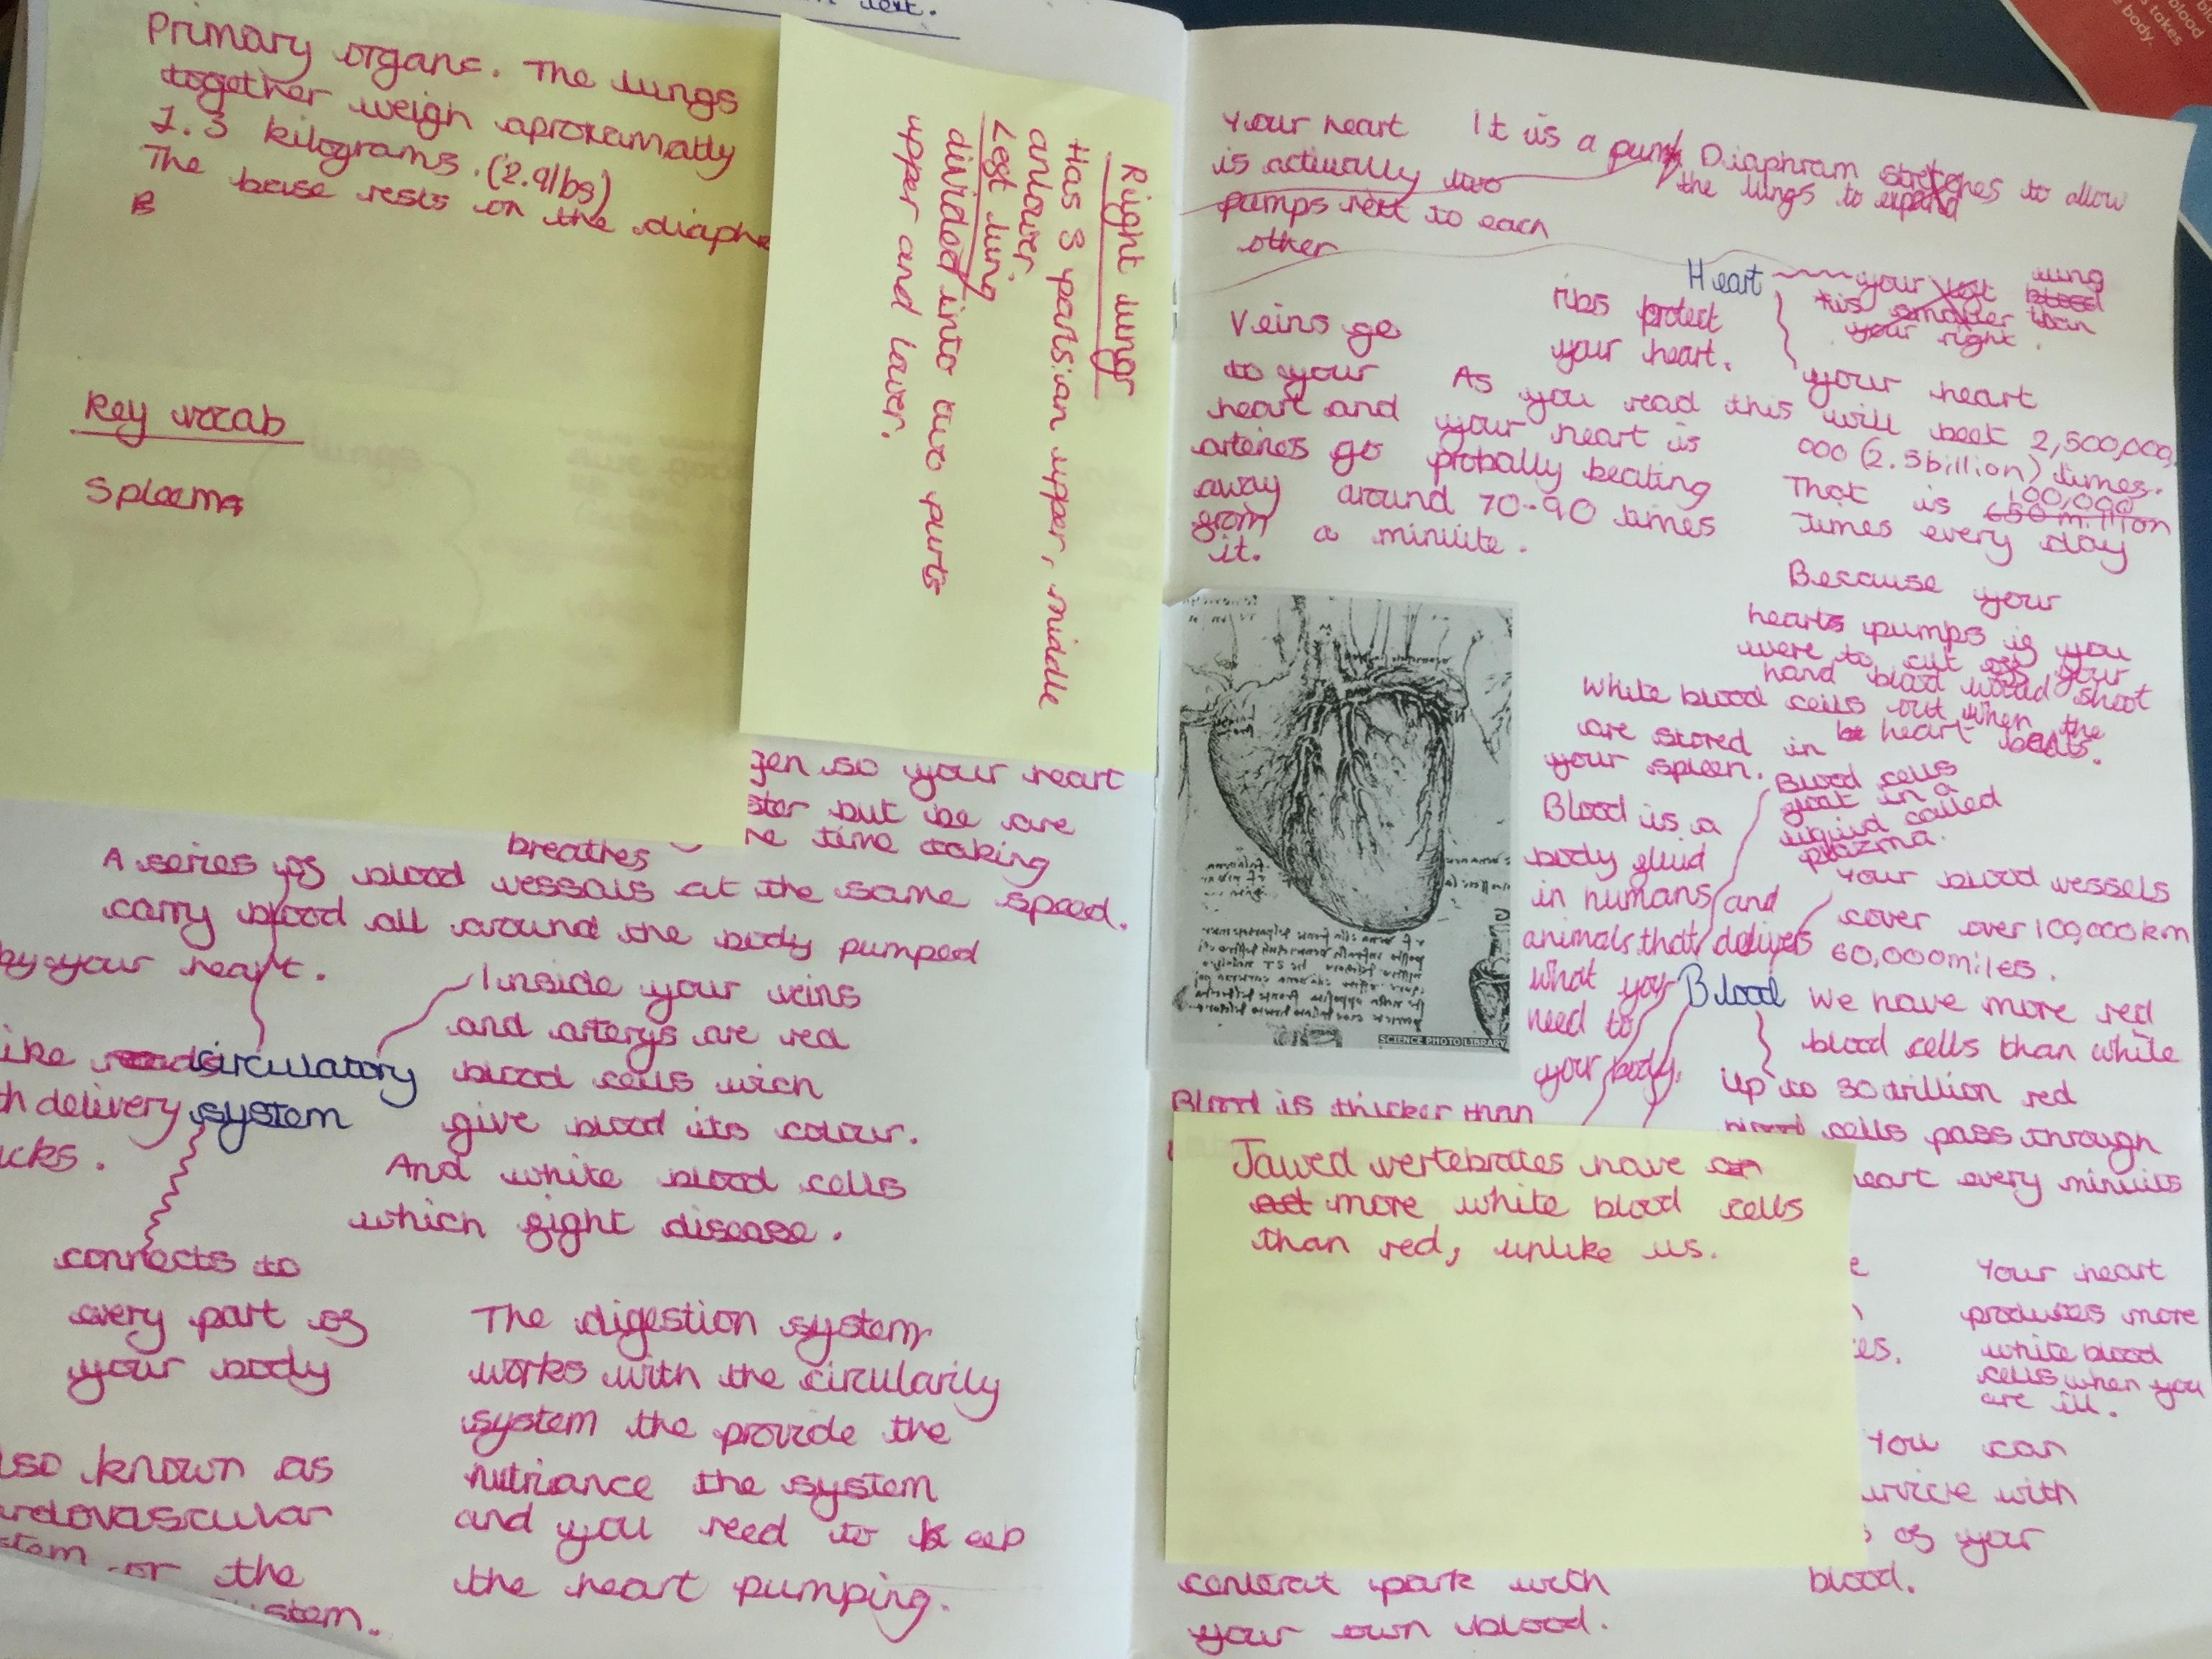 Primary organs. The lungs
together weigh aproxamatly
1.3 kilograms. (2.9lbs)
The base rests on the diaph
B
Key vocab
Spleem
Right lung
Has 3 parts: an upper, middle
an lower
Left lung
divided into two parts
upper and lower.
gen so your heart
ster but be are
breathes
time taking
A series of blood vessals at the same speed.
carry blood all around the body pumped
by your heart.
circulatory
system
delivery
Inside your veins
and arterys are red
blood cells wich
give blood its colour.
And white blood cells
which fight disease.
connects to
every part of
your body
The digestion system
works with the circularily
system the provide the
nutriance the system
and you need to keep
the heart pumping.
so known as
ardovascular
stem or the
stem.
your heart
is actiually two
pumps next to each
other
It is a pump
Diaphram stretches to allow
the lungs to expand
Heart
your left lung
is smaller than
your right.
Veins go
to your
heart and
arteries go
away
from
it.
ribs protect
your heart.
As you read this
your heart is
probally beating
around 70-90 times
a miniute.
your heart
will beat 2,500,000,
000 (2.5billion) times.
That is 100,000
650 million
times every day
Because your
hearts pumps if you
were to cut off your
hand blood woud shoot
out when the
heart beats.
White blood cells
are stored in
your spleen.
Blood cells
float in a
liquid called
plazma.
Blood is a
body fluid
in humans and
animals that delivers
what you
need to
your body.
Your blood vessels
cover over 100,000km
60,000miles.
Blood
We have more red
blood cells than white
Up to 30 trillion red
blood cells pass through
heart every miniuts
SCIENCE PHOTO LIBRARY
Blood is thicker than
Jawed vertebrates have
more white blood cells
than red, unlike us.
Your heart
produces more
white blood
cells when you
are ill.
You can
with
of your
blood.
park with
your own blood.